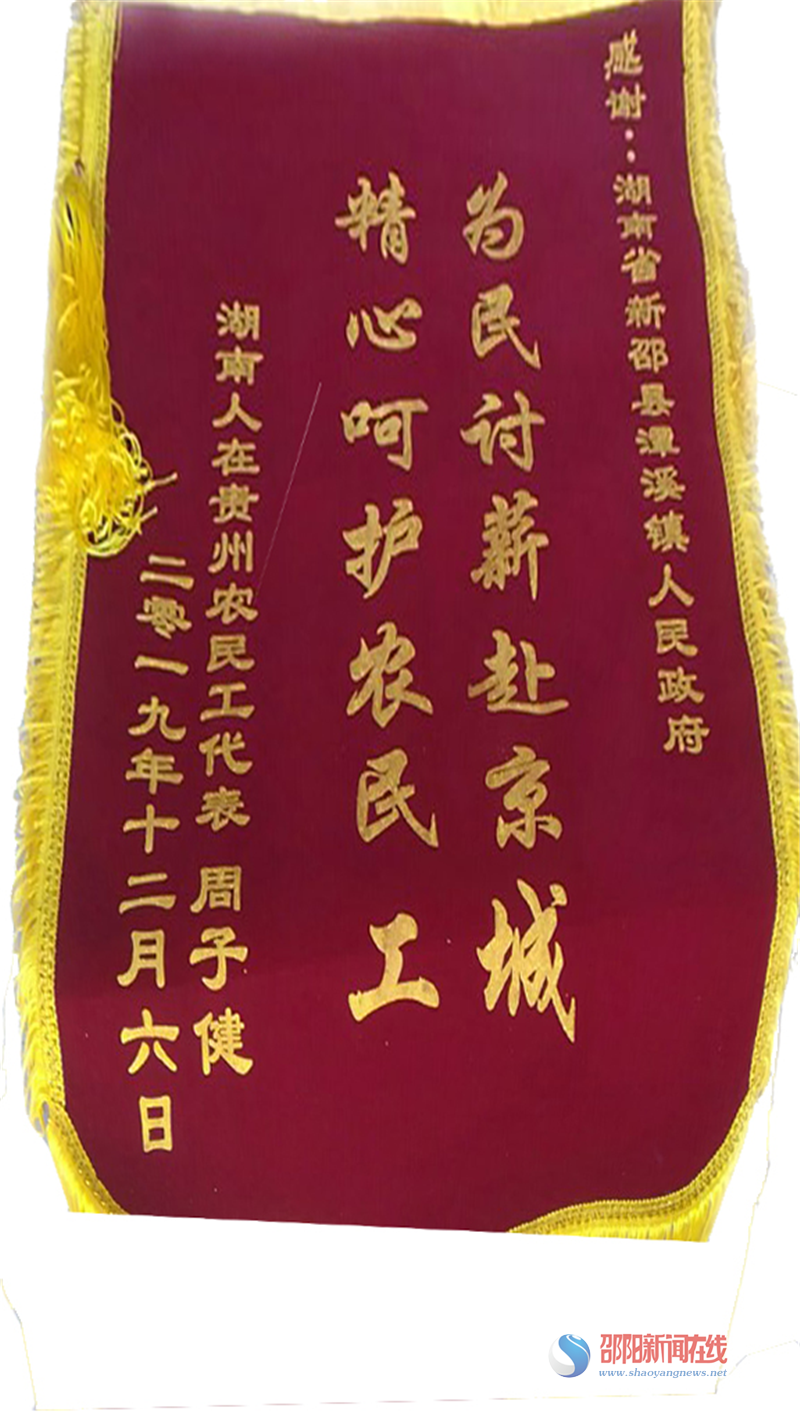 感谢：湖南省新邵县潭溪镇人民政府
为民讨薪赴京城
精心呵护农民工
湖南人在贵州农民工代表 周子健
二零一九年十二月六日
邵阳新闻在线
www.shaoyangnews.net